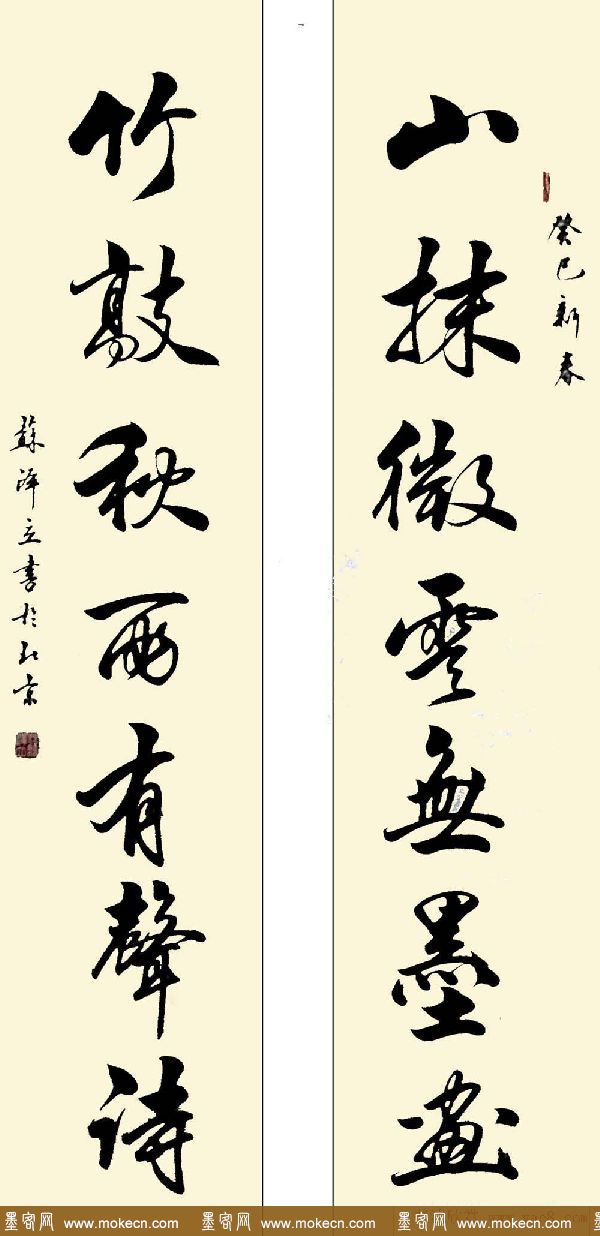 癸巳新春
山抹微雲無墨畫
竹敲秋雨有聲詩
蘇澤立書於北京
墨客网 www.mokecn.com 墨客网 www.mokecn.com 墨客网 www.mokecn.com 墨客网 www.mokecn.com